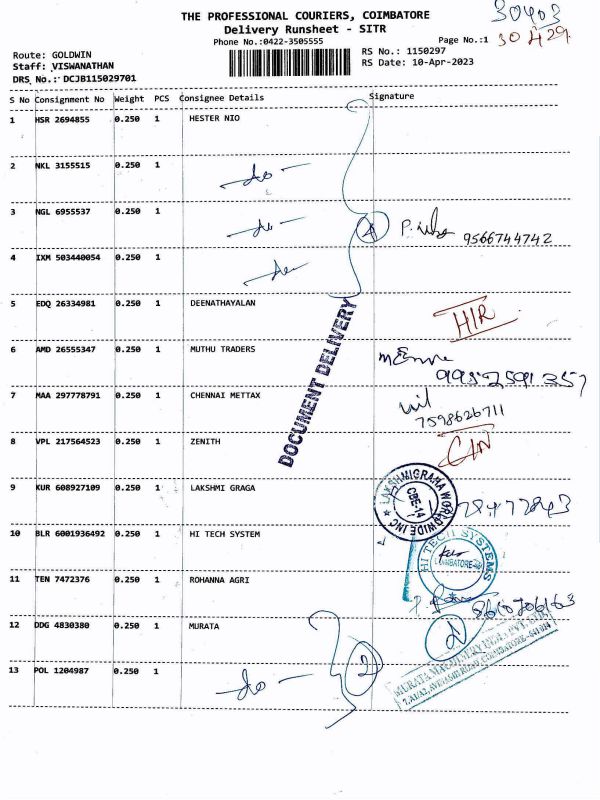 THE PROFESSIONAL COURIERS, COIMBATORE
30403
Delivery Runsheet - SITR
Phone No.:0422-3505555
Page No.:1
30429
Route: GOLDWIN
RS No.: 1150297
Staff: VISWANATHAN
RS Date: 10-Apr-2023
DRS No.: DCJB115029701
S No Consignment No Weight PCS Consignee Details Signature
1 HSR 2694855 0.250 1 HESTER NIO
2 NKL 3155515 0.250 1
-do-
3 NGL 6955537 0.250 1
-do- 4 9566744742
4 IXM 503440054 0.250 1
-do-
5 EDQ 26334981 0.250 1 DEENATHAYALAN
DOCUMENT DELIVERY
6 AMD 26555347 0.250 1 MUTHU TRADERS
7 MAA 297778791 0.250 1 CHENNAI METTAX
7598626711
8 VPL 217564523 0.250 1 ZENITH
9 KUR 608927109 0.250 1 LAKSHMI GRAGA
LAKSHMIGRAHA WORLDWIDE INC
CBE-14
10 BLR 6001936492 0.250 1 HI TECH SYSTEM
HI TECH SYSTEMS
11 TEN 7472376 0.250 1 ROHANNA AGRI
12 DDG 4830380 0.250 1 MURATA
2
13 POL 1204987 0.250 1
-do- 2